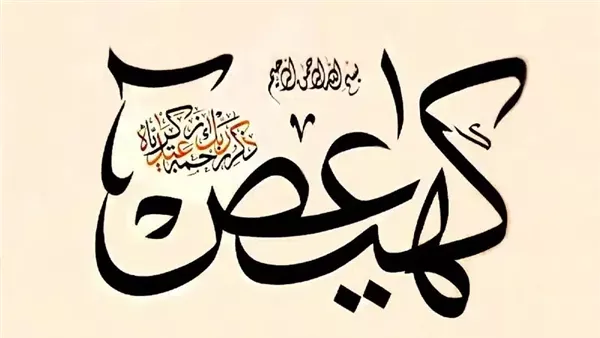 بسم الله الرحمن الرحيم
كهيعص
ذكر رحمة ربك عبده زكريا